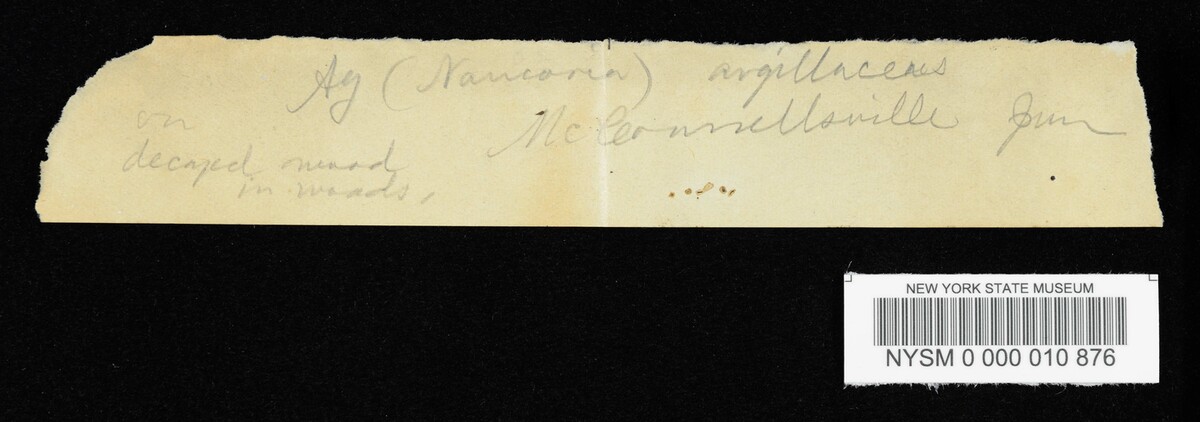 Ag (Naucoria) argillaceus
McConnellsville Jun
on
decayed wood
in woods,
NEW YORK STATE MUSEUM
NYSM 0 000 010 876